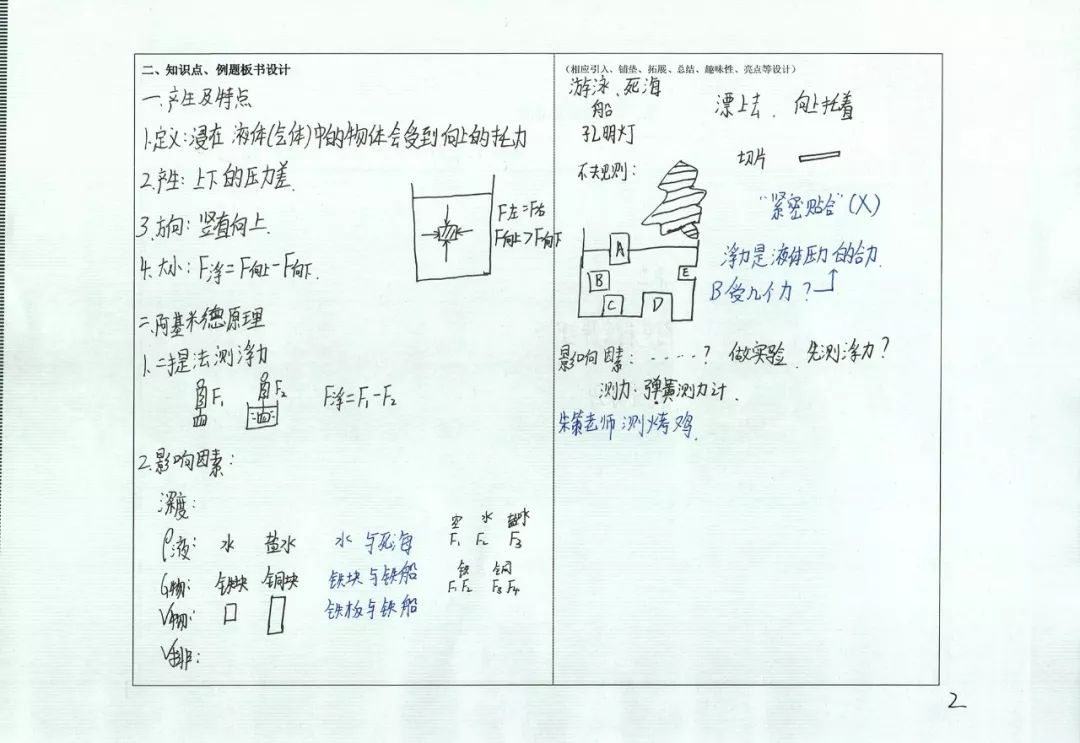 二、知识点、例题板书设计
一.产生及特点
1.定义:浸在液体(气体)中的物体会受到向上的托力
2.产生:上下的压力差.
3.方向:竖直向上.
4.大小:F浮=F向上-F向下.
F左=F右
F向上>F向下
二.阿基米德原理
1.二提法测浮力
F₁ F₂ F浮=F₁-F₂
2.影响因素:
深度:
ρ液: 水 盐水 水与死海
空 水 盐水
F₁ F₂ F₃
G物: 铁块 铜块 铁块与铁船
铁 铜
F₁F₂ F₃F₄
V物: 铁板与铁船
V排:
(相应引入、铺垫、拓展、总结、趣味性、亮点等设计)
游泳、死海
船
孔明灯
漂上去. 向上托着
切片
"紧密贴合"(X)
A
B
C
D
E
浮力是液体压力的合力.
B受几个力?
影响因素:.....? 做实验. 先测浮力?
测力:弹簧测力计.
老师测烤鸡.
2